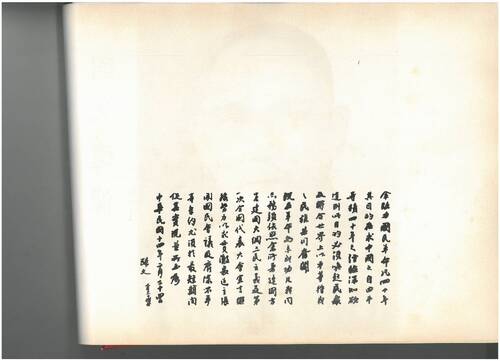 余致力國民革命凡四十年
其目的在求中國之自由平
等積四十年之經驗深知欲
達到此目的必須喚起民眾
及聯合世界上以平等待我
之民族共同奮鬥
現在革命尚未成功凡我同
志務須依照余所著建國方
略建國大綱三民主義及第
一次全國代表大會宣言繼
續努力以求貫澈最近主張
開國民會議及廢除不平
等條約尤須於最短期間
促其實現是所至囑
中華民國十四年二月二十四日
孫文